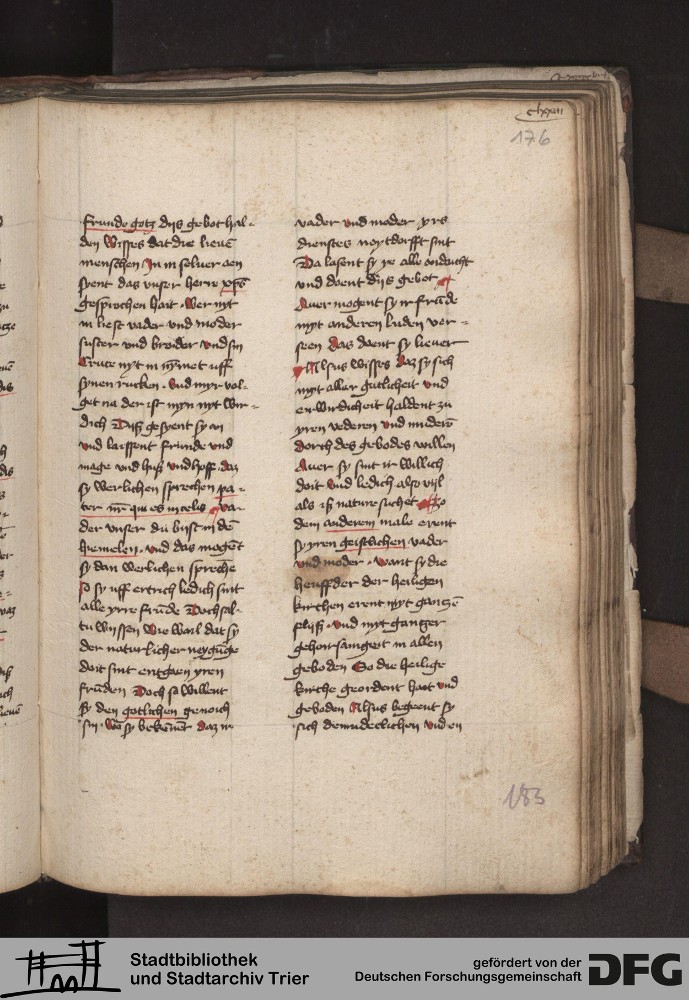 clxxvi
176
frunde gotz dijs gebot hal-
den Wisses dat die lieuē
menschen In in seluer aen
syent das vnser herre xp̄s
gesprochen hait Wer nyt
in liest vader vnd moder
suster vnd broider vnd sin
Cruce nyt in nymet uff
synen rucken. Vnd myr vol-
get na der ist myn nyt wir-
dich Duß gesyent sy an
vnd laissent frunde vnd
mage vnd huß vnd hoff daz
sy werlichen sprechen pa-
ter nr̄ qui es in celis va-
der vnser du bist in dē
hiemelen. vnd das mogēt
sy dan werlichen sprechē
so sy uff ertrich ledich sint
alle yrre frūde Doch sal-
tu wyssen Wie wail dat sy
der naturlicher neygūge
doit sint entgaen yren
frūden Doch so willent
sy den gotlichen genoich
sin. Wā sy bekennēt daz ir
vader vnd moder yrs
dienstes noytdorfft sint
Da lasent sy ye alle andacht
vnd doent dijs gebot
Auer mogent sy ir frūde
myt anderen luden ver-
seen das doent sy lieuer
Alsus wisses daz sy sich
myt allar gutlicheit vnd
erwirdicheit haldent zu
yren vederen vnd muderē
dorch des gebodes willen
Auer sy sint ir willich
doit vnd ledich also vijl
als iß nature suchet Zo
dem anderem male erent
sy yren geistlichen vader
vnd moder. Want sy die
heuffder der heiligen
kirchen erent myt gantzē
flijß. vnd myt gantzer
gehoirsamgeit in allen
geboden So die heilige
kirche geordent hait vnd
geboden Alsus begeent sy
sich demudeclichen vnd en
183
Stadtbibliothek
und Stadtarchiv Trier
gefördert von der
Deutschen Forschungsgemeinschaft
DFG